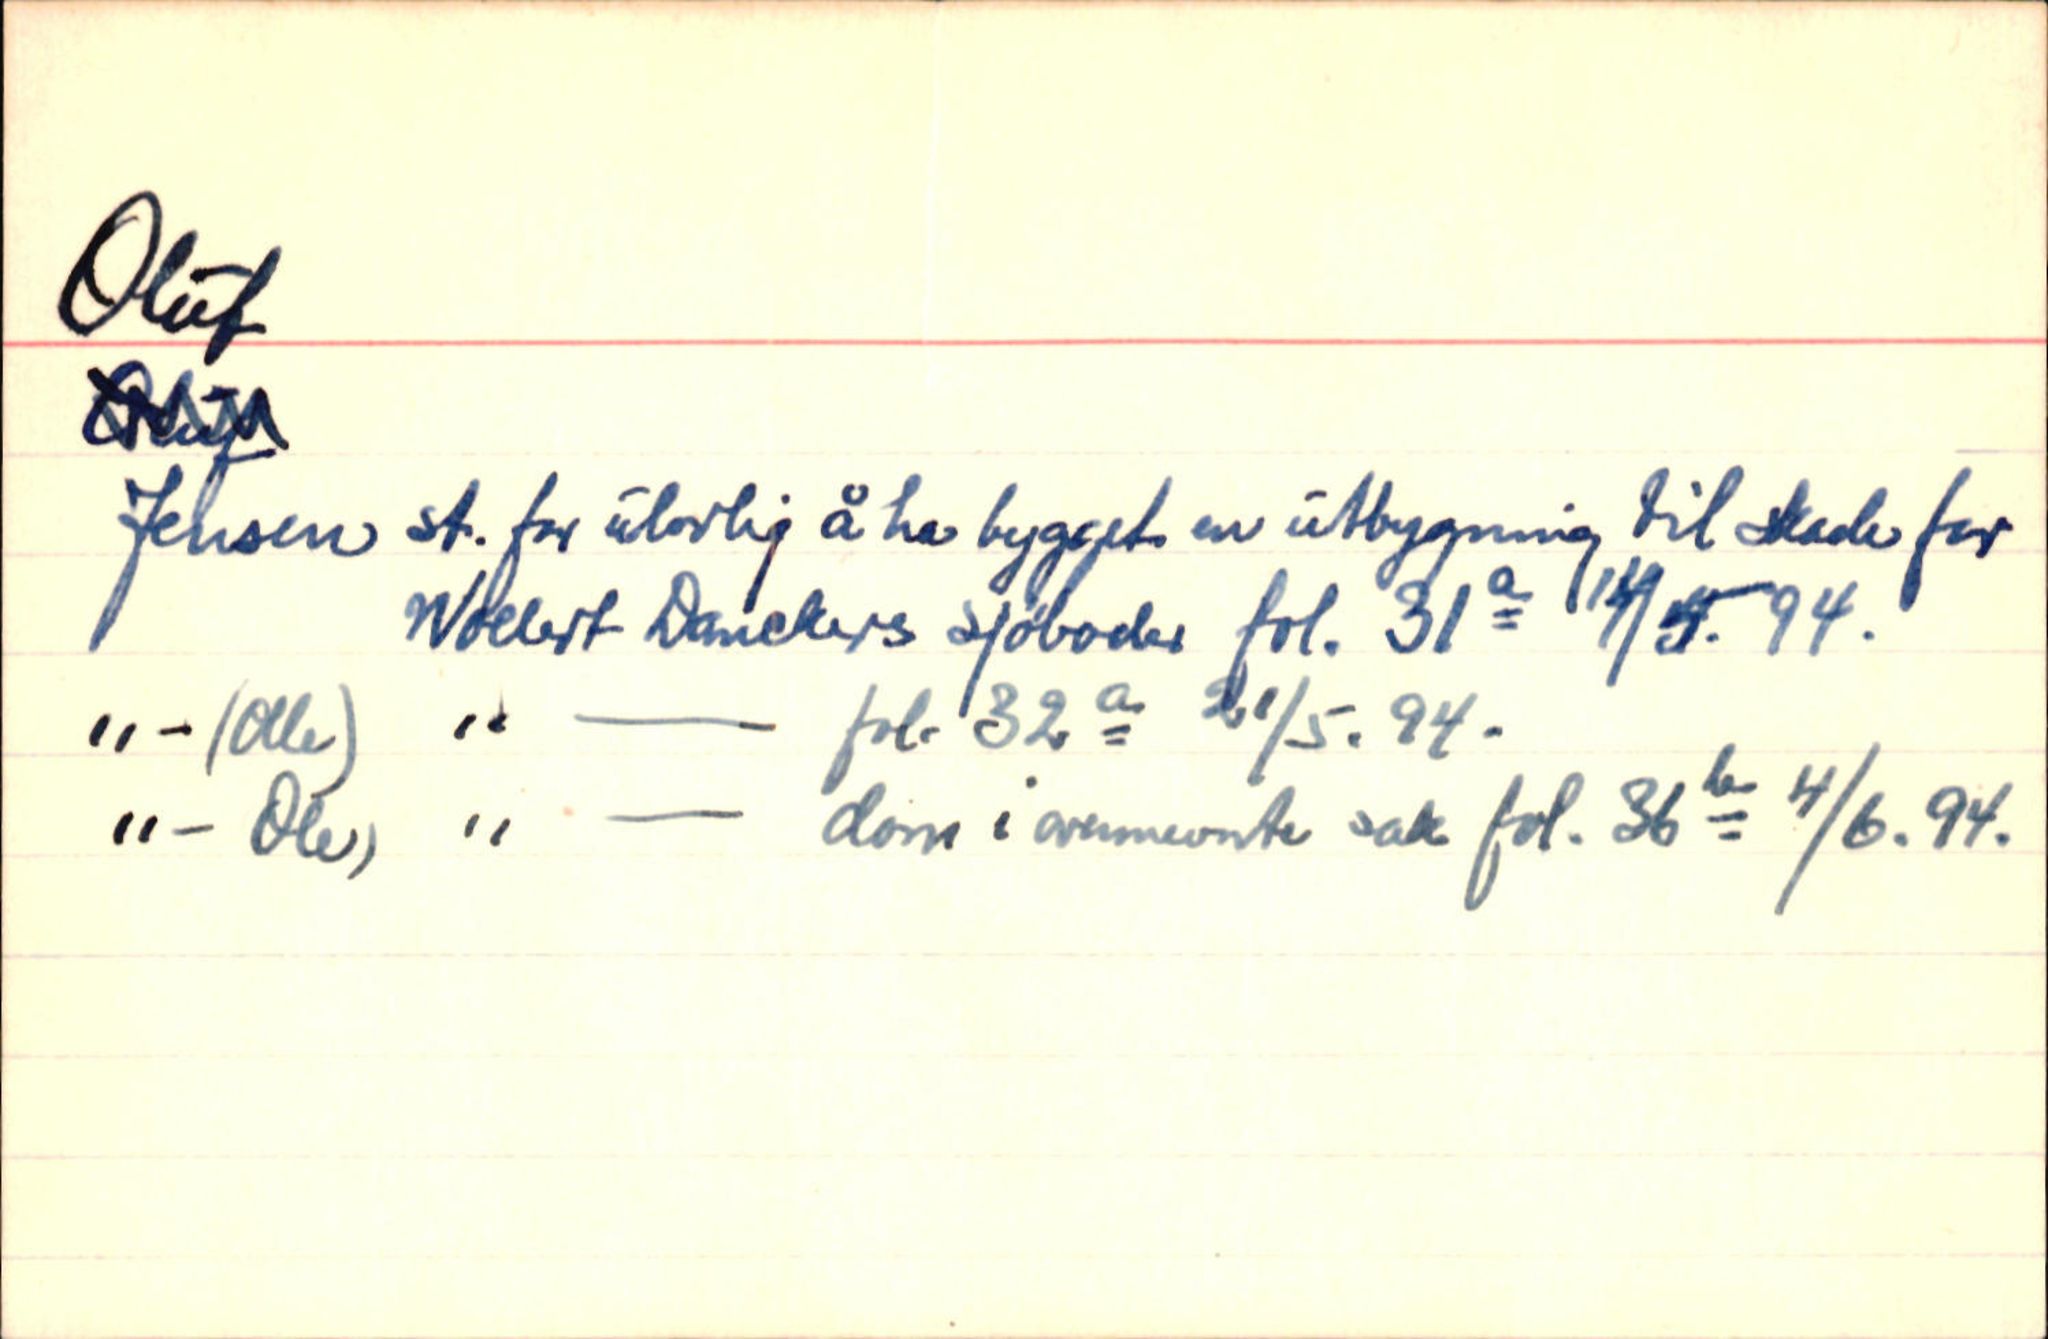 Oluf
Oluf
Jensen st. for ulovlig å ha bygget en utbygning til skade for
Wollert Danckers sjøboder fol. 31a 14/5. 94.
" - (Olle) " — fol. 32a 21/5. 94.
" - Ole) " — dom i ovennevnte sak fol. 36b 4/6. 94.